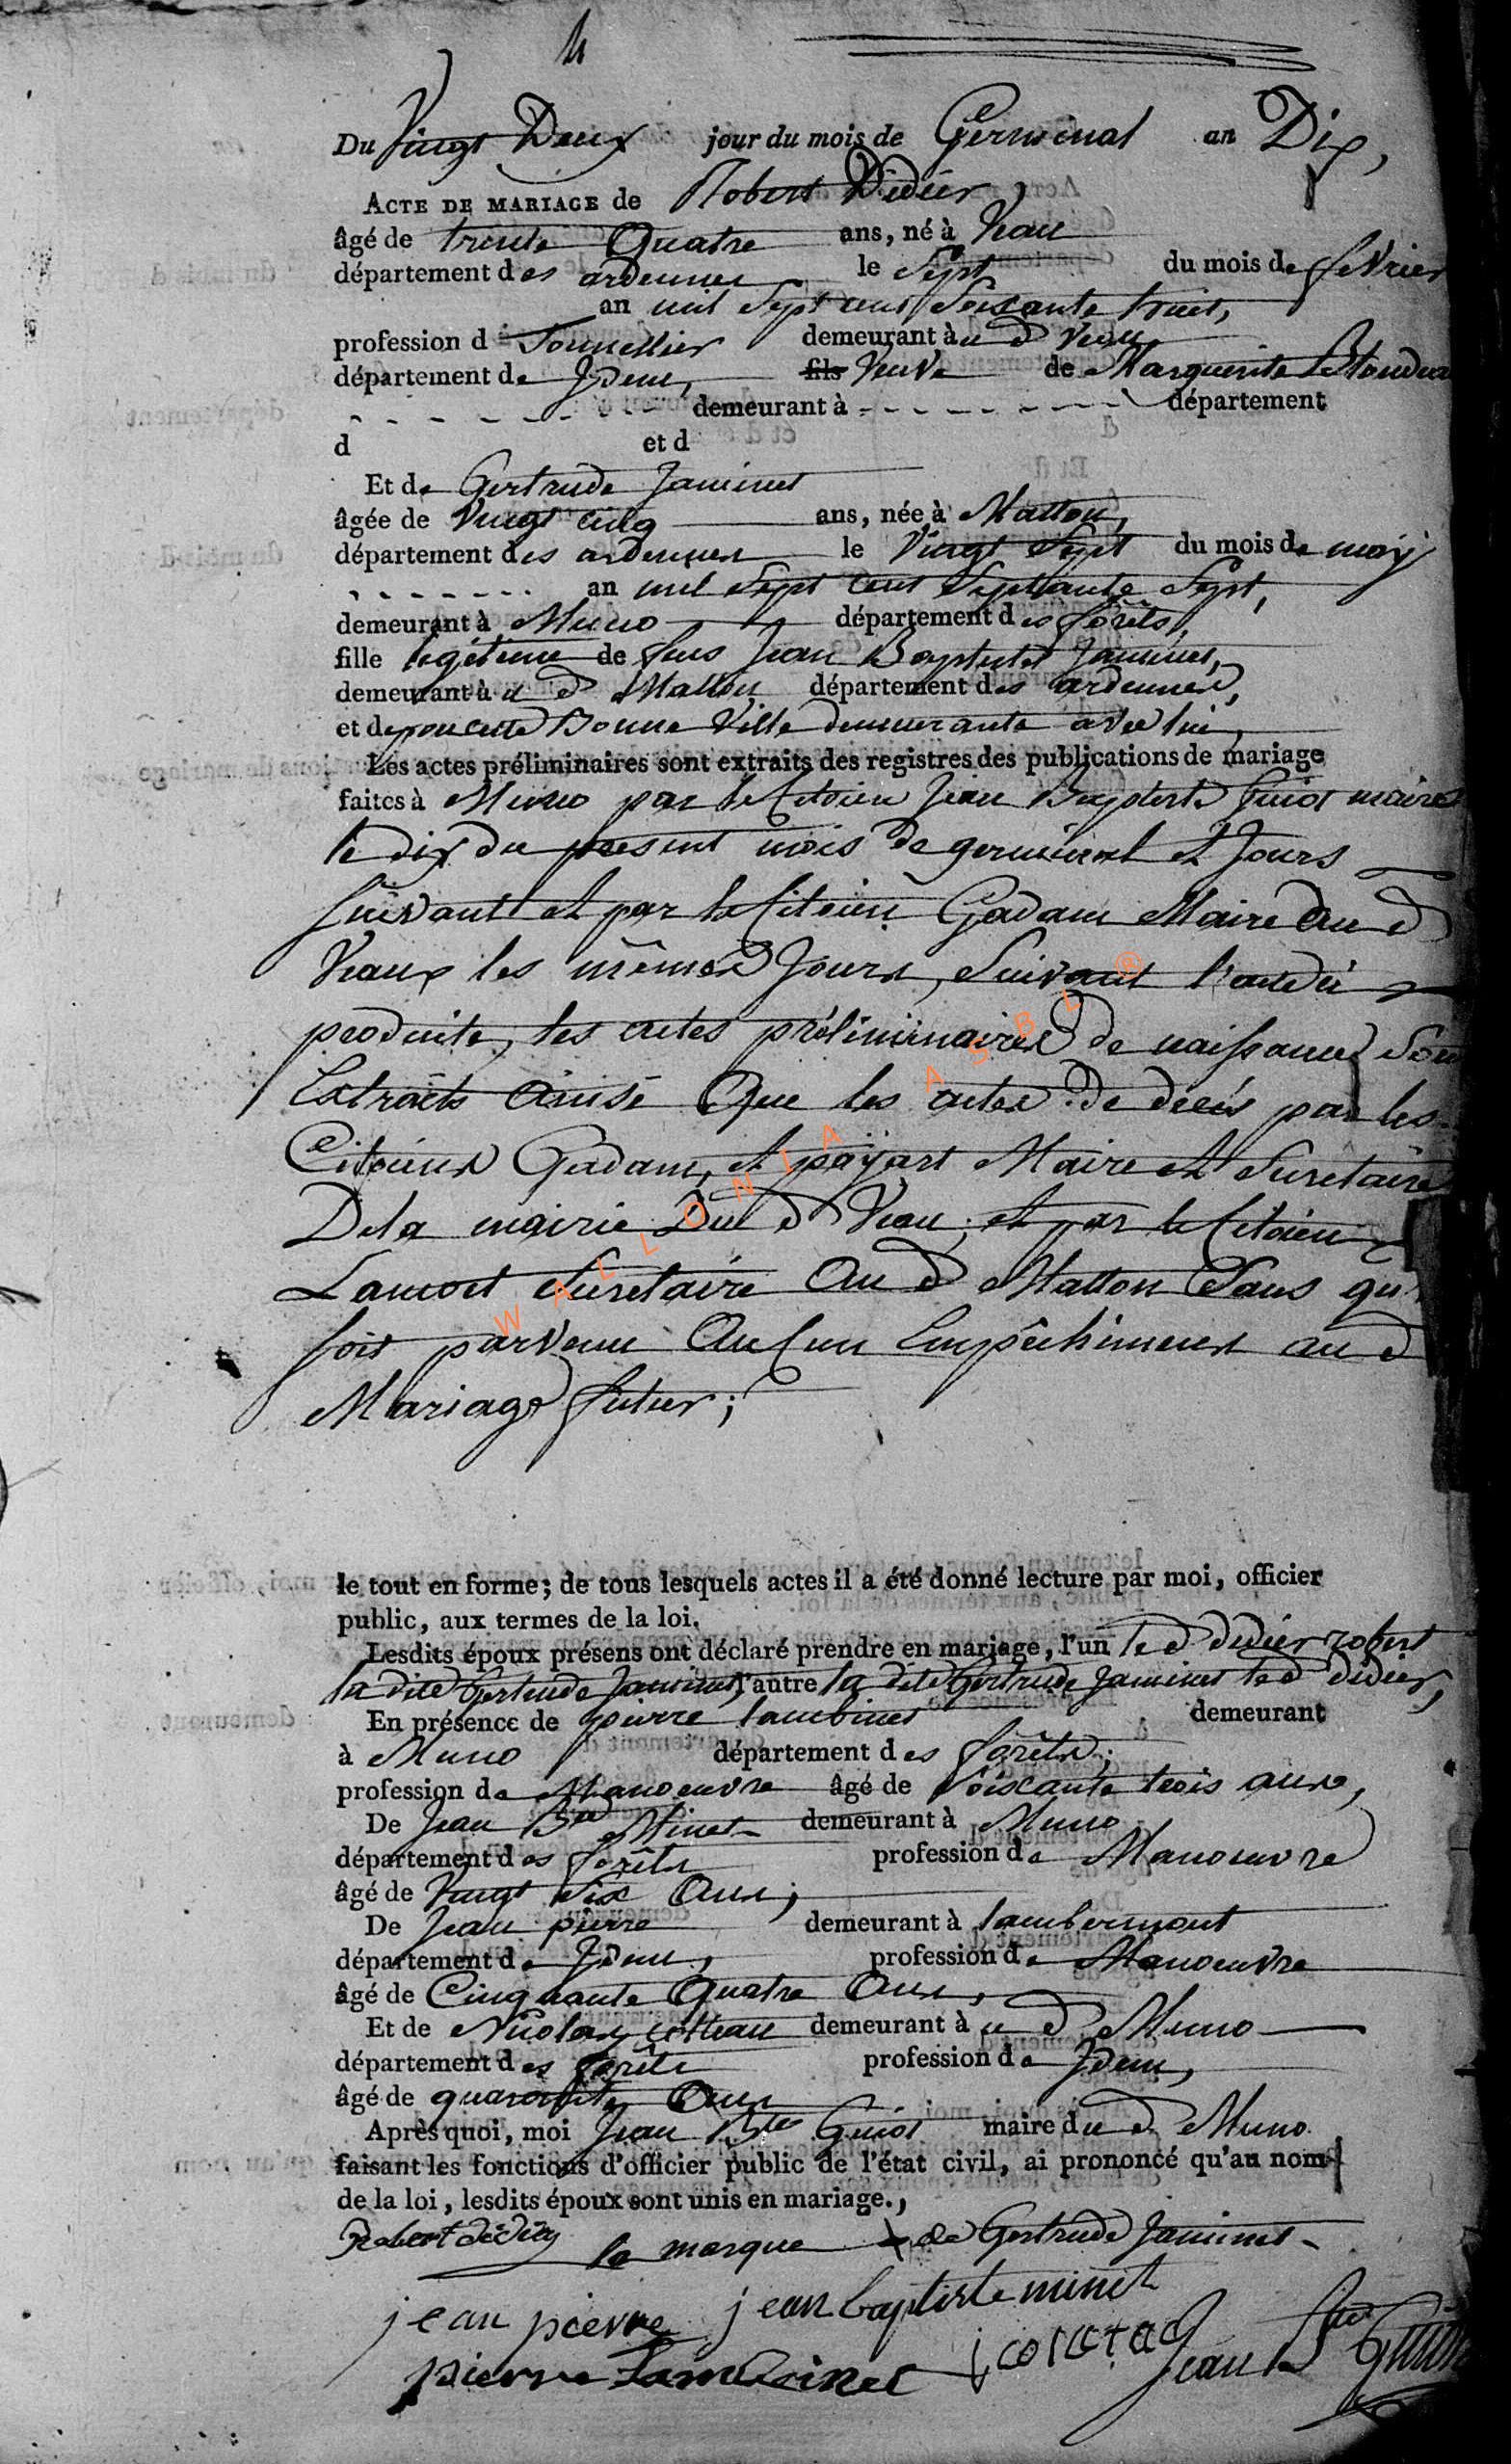 4
Du Vingt Deux jour du mois de Germinal an Dix,
ACTE DE MARIAGE de Robert Didier,
âgé de trente Quatre ans, né à Vaux
département des ardennes le Sept du mois de fevrier
an mil Sept cent Soixante huit,
profession d Tonnellier demeurant à u d Vaux
département de Idem, fils Veuve de Marguerite
demeurant à département
d et d
Et de Gertrude Jaminet
âgée de Vingt cinq ans, née à Matton,
département des ardennes le Vingt Sept du mois de may
an mil Sept cent Septante Sept,
demeurant à Muno département des forêts,
fille legitime de feus Jean Baptiste Jaminet,
demeurant à u d Matton département des ardennes,
et de poncette Bonne Ville demeurante avec lui,
Les actes préliminaires sont extraits des registres des publications de mariage
faites à Muno par le Citoien Jean Baptiste Guiot maire
le dix du present mois de germinal et Jours
Suivant et par le Citoien Gadam Maire du d
Vaux les mêmes Jours, Suivant l'acte
produite, les actes préliminaires de naissance Son
Extraits Ainsi Que les actes de decés par les
Citoiens Gadam, et payart Maire et Secretaire
De la mairie Du d Vaux; et par le Citoien
Lamort Secretaire Au d Matton Sans qu
soit parvenu Aucun Empêchement au d
Mariage futur;
WALLONIA ASBL ®
le tout en forme; de tous lesquels actes il a été donné lecture par moi, officier
public, aux termes de la loi.
Lesdits époux présens ont déclaré prendre en mariage, l'un le d didier robert
la dite Gertrude Jaminet, l'autre la dite Gertrude Jaminet le d didier,
En présence de pierre lambinet demeurant
à Muno département des forêts;
profession de Manoeuvre âgé de Soiscante trois ans,
De Jean Bte Minet demeurant à Muno
département des forêts profession de Manoeuvre
âgé de Vingt Six Ans;
De Jean pierre demeurant à lambermont
département de Idem, profession de Manoeuvre
âgé de Cinquante Quatre Ans,
Et de Nicolas demeurant à u d Muno
département des forêts profession de Idem,
âgé de quarante Ans
Après quoi, moi Jean Bte Guiot maire du d Muno
faisant les fonctions d'officier public de l'état civil, ai prononcé qu'au nom
de la loi, lesdits époux sont unis en mariage.,
Robert dédiéz la marque + de Gertrude Jaminet
jean pierre jean baptiste minet
pierre Lambinet Jean Bte Guiot